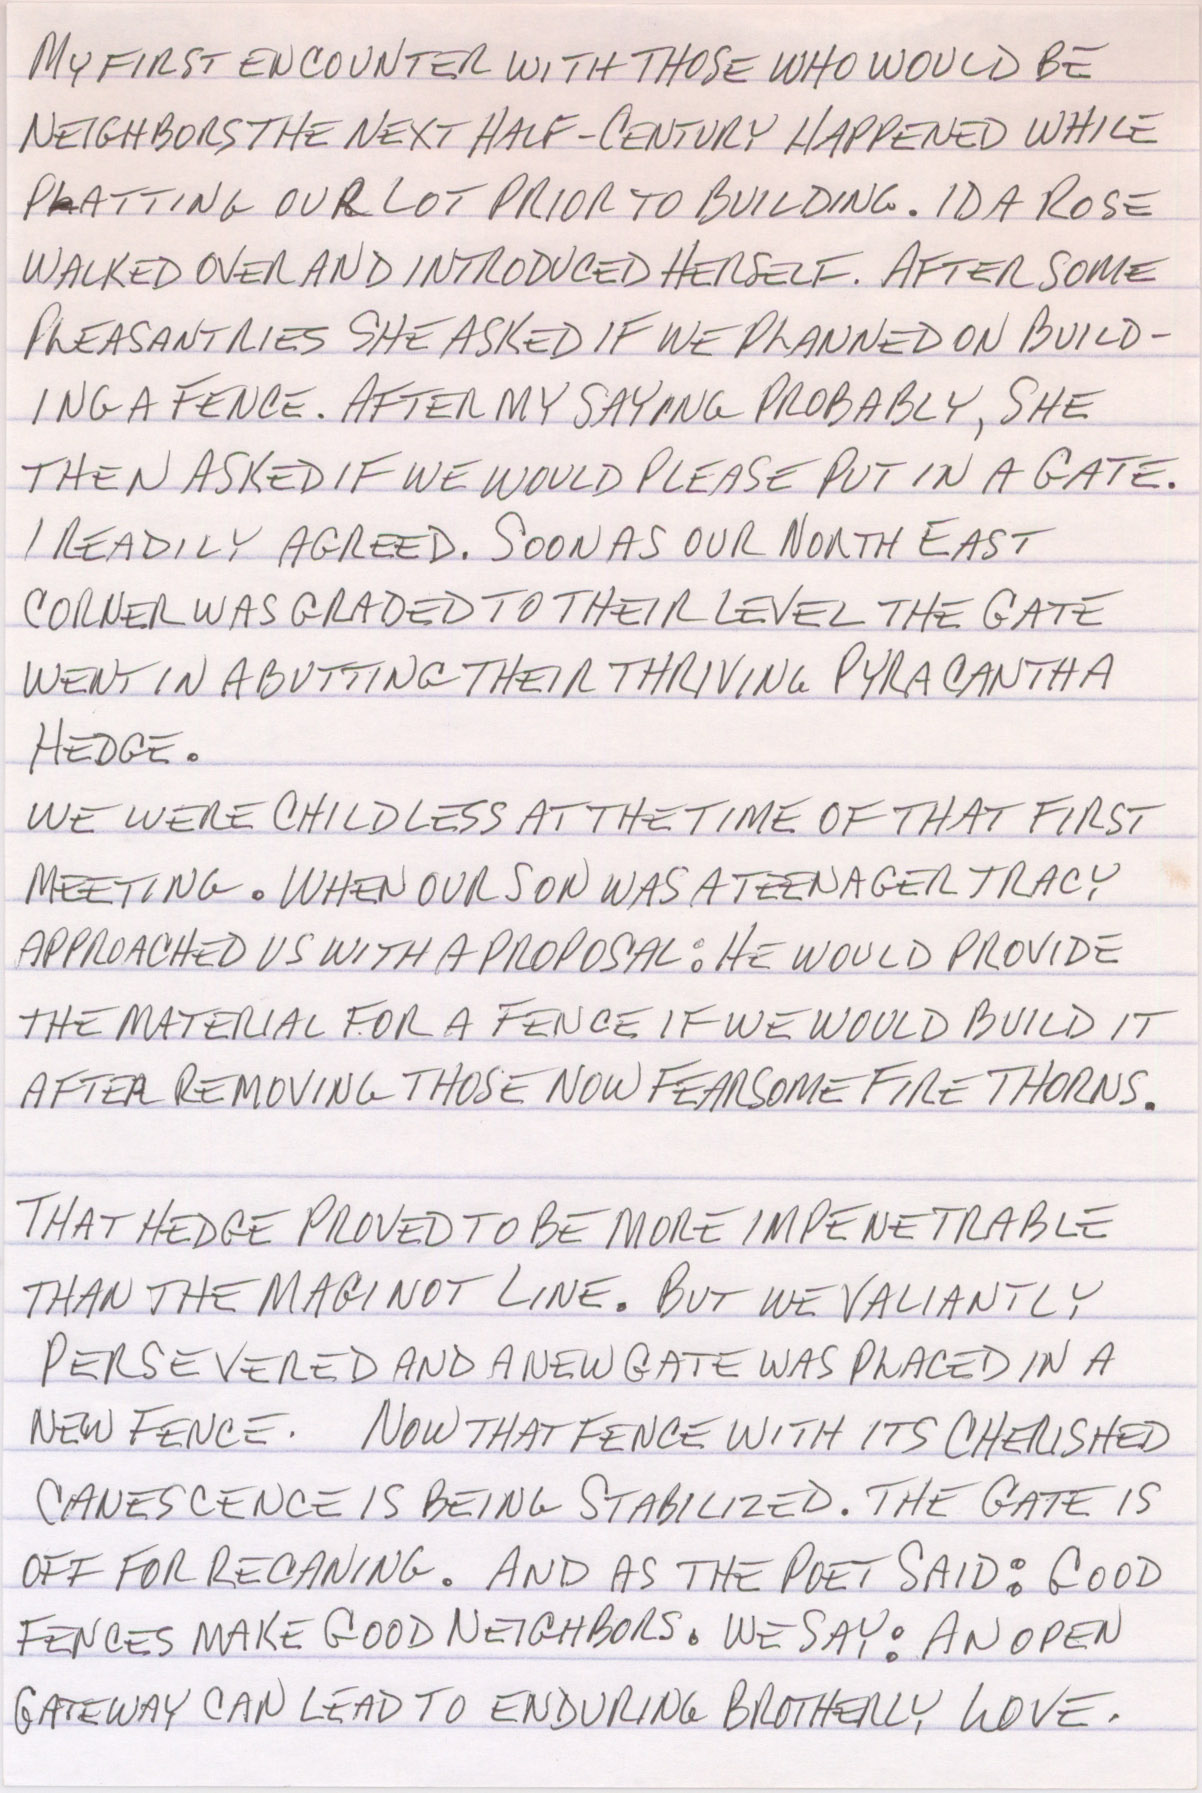 MY FIRST ENCOUNTER WITH THOSE WHO WOULD BE
NEIGHBORS THE NEXT HALF-CENTURY HAPPENED WHILE
PLATTING OUR LOT PRIOR TO BUILDING. IDA ROSE
WALKED OVER AND INTRODUCED HERSELF. AFTER SOME
PLEASANTRIES SHE ASKED IF WE PLANNED ON BUILD-
ING A FENCE. AFTER MY SAYING PROBABLY, SHE
THEN ASKED IF WE WOULD PLEASE PUT IN A GATE.
I READILY AGREED. SOON AS OUR NORTH EAST
CORNER WAS GRADED TO THEIR LEVEL THE GATE
WENT IN ABUTTING THEIR THRIVING PYRACANTHA
HEDGE.
WE WERE CHILDLESS AT THE TIME OF THAT FIRST
MEETING. WHEN OUR SON WAS A TEENAGER TRACY
APPROACHED US WITH A PROPOSAL: HE WOULD PROVIDE
THE MATERIAL FOR A FENCE IF WE WOULD BUILD IT
AFTER REMOVING THOSE NOW FEARSOME FIRE THORNS.
THAT HEDGE PROVED TO BE MORE IMPENETRABLE
THAN THE MAGINOT LINE. BUT WE VALIANTLY
PERSEVERED AND A NEW GATE WAS PLACED IN A
NEW FENCE. NOW THAT FENCE WITH ITS CHERISHED
CANESCENCE IS BEING STABILIZED. THE GATE IS
OFF FOR RECANING. AND AS THE POET SAID: GOOD
FENCES MAKE GOOD NEIGHBORS. WE SAY: AN OPEN
GATEWAY CAN LEAD TO ENDURING BROTHERLY LOVE.